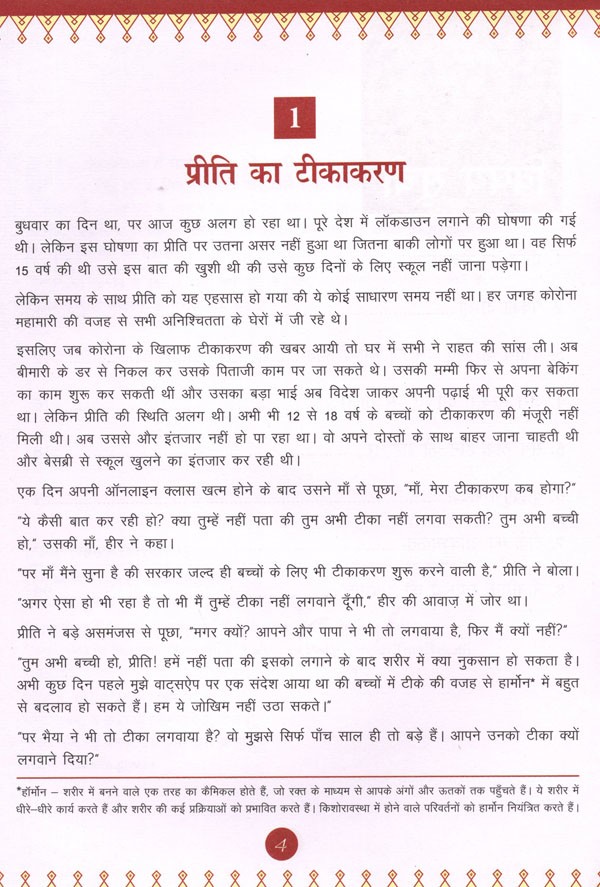 1
प्रीति का टीकाकरण
बुधवार का दिन था, पर आज कुछ अलग हो रहा था। पूरे देश में लॉकडाउन लगाने की घोषणा की गई
थी। लेकिन इस घोषणा का प्रीति पर उतना असर नहीं हुआ था जितना बाकी लोगों पर हुआ था। वह सिर्फ
15 वर्ष की थी उसे इस बात की खुशी थी की उसे कुछ दिनों के लिए स्कूल नहीं जाना पड़ेगा।
लेकिन समय के साथ प्रीति को यह एहसास हो गया की ये कोई साधारण समय नहीं था। हर जगह कोरोना
महामारी की वजह से सभी अनिश्चितता के घेरों में जी रहे थे।
इसलिए जब कोरोना के खिलाफ टीकाकरण की खबर आयी तो घर में सभी ने राहत की सांस ली। अब
बीमारी के डर से निकल कर उसके पिताजी काम पर जा सकते थे। उसकी मम्मी फिर से अपना बेकिंग
का काम शुरू कर सकती थीं और उसका बड़ा भाई अब विदेश जाकर अपनी पढ़ाई भी पूरी कर सकता
था। लेकिन प्रीति की स्थिति अलग थी। अभी भी 12 से 18 वर्ष के बच्चों को टीकाकरण की मंजूरी नहीं
मिली थी। अब उससे और इंतजार नहीं हो पा रहा था। वो अपने दोस्तों के साथ बाहर जाना चाहती थी
और बेसब्री से स्कूल खुलने का इंतजार कर रही थी।
एक दिन अपनी ऑनलाइन क्लास खत्म होने के बाद उसने माँ से पूछा, "माँ, मेरा टीकाकरण कब होगा?"
"ये कैसी बात कर रही हो? क्या तुम्हें नहीं पता की तुम अभी टीका नहीं लगवा सकती? तुम अभी बच्ची
हो," उसकी माँ, हीर ने कहा।
"पर माँ मैंने सुना है की सरकार जल्द ही बच्चों के लिए भी टीकाकरण शुरू करने वाली है," प्रीति ने बोला।
"अगर ऐसा हो भी रहा है तो भी मैं तुम्हें टीका नहीं लगवाने दूँगी," हीर की आवाज़ में जोर था।
प्रीति ने बड़े असमंजस से पूछा, "मगर क्यों? आपने और पापा ने भी तो लगवाया है, फिर मैं क्यों नहीं?"
"तुम अभी बच्ची हो, प्रीति! हमें नहीं पता की इसको लगाने के बाद शरीर में क्या नुकसान हो सकता है।
अभी कुछ दिन पहले मुझे वाट्सऐप पर एक संदेश आया था की बच्चों में टीके की वजह से हार्मोन* में बहुत
से बदलाव हो सकते हैं। हम ये जोखिम नहीं उठा सकते।"
"पर भैया ने भी तो टीका लगवाया है? वो मुझसे सिर्फ पाँच साल ही तो बड़े हैं। आपने उनको टीका क्यों
लगवाने दिया?"
*हॉर्मोन – शरीर में बनने वाले एक तरह का कैमिकल होते हैं, जो रक्त के माध्यम से आपके अंगों और ऊतकों तक पहुँचते हैं। ये शरीर में
धीरे–धीरे कार्य करते हैं और शरीर की कई प्रक्रियाओं को प्रभावित करते हैं। किशोरावस्था में होने वाले परिवर्तनों को हार्मोन नियंत्रित करते हैं।
4